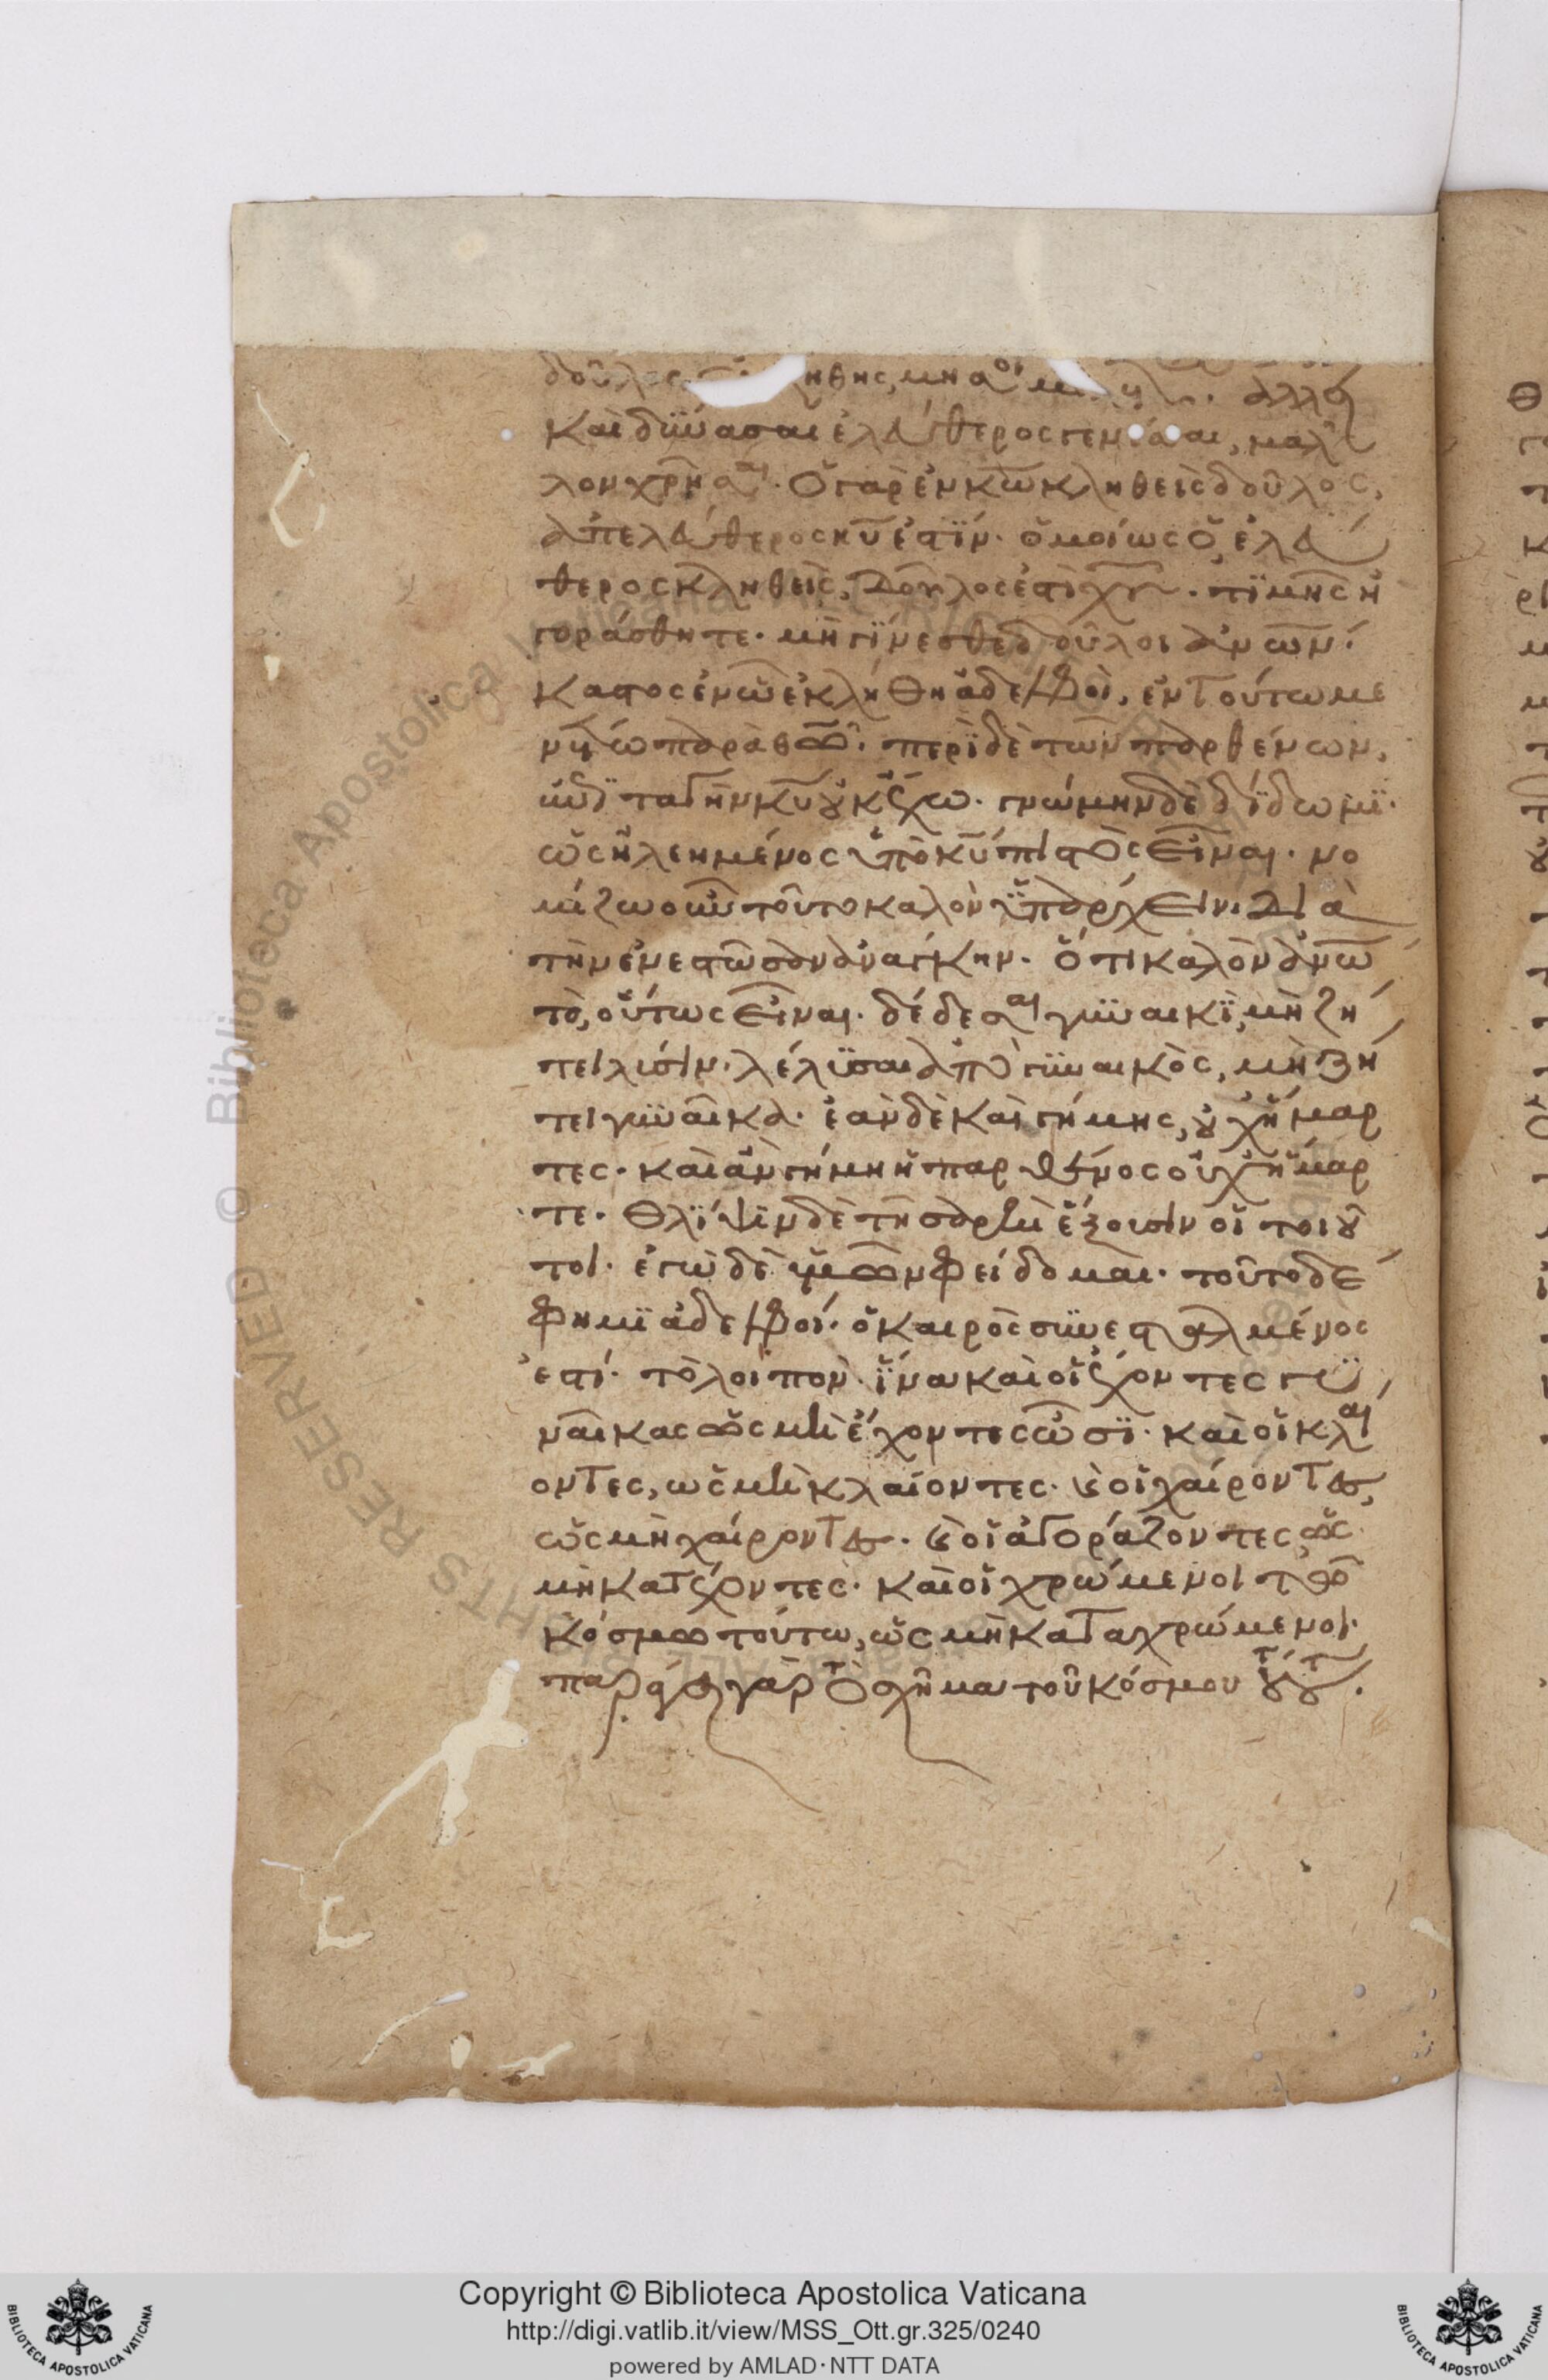 δοῦλος ηθης, μη σοι ἀλλ
Και δϋνασαι ἐλεύθερος γενέσθαι, μαλ
λον χρῆσαι. Ὁ γαρ ἐν κω κληθεὶς δοῦλος,
ἀπελεύθερος κυ ἐστϊν. ὁμοίως ὁ ἐλευ
θερος κληθεὶς, Δοῦλος ἐστὶ χυ. τϊμῆς ἠ
γοράσθητε. μὴ γίνεσθε δοῦλοι ἀνων.
Καστος ἐν ω ἐκλήθη ἀδελφοὶ, ἐν τούτω με
νέτω παρὰ θω. περὶ δὲ τῶν παρθένων,
ἐπϊταγὴν κυ οὐκ ἔχω. γνώμην δὲ δίδωμϊ.
ὡς ἠλεημένος ὑπὸ κυ πιστὸς εἶναι. νο
μίζω οὖν τοῦτο καλὸν ὑπάρχειν. Διὰ
τὴν ἐνεστῶσαν ἀνάγκην. ὅτι καλὸν ἀνω
τὸ, οὕτως εἶναι. δέδεσαι γυναικϊ, μὴ ζή
τει λύσιν. λέλϋσαι ἀπὸ γυναικὸς, μὴ ζή
τει γυναῖκα. ἐὰν δὲ Και γήμης, οὐχ ἥμαρ
τες. και ἀν γήμη ἡ παρθένος οὐχ ἥμαρ
τε. Θλῖψιν δὲ τῆ σαρκὶ ἕξουσιν οἱ τοιοῦ
τοι. ἐγὼ δὲ ὑμῶν φείδομαι. τοῦτο δέ
φημϊ ἀδελφοί. ὁ καιρὸς συνεσταλμένος
ἐστί. τὸ λοιπον. ἵνα και οἱ ἔχοντες γυ
ναῖκας ὡς μὴ ἔχοντες ὦσϊ. και οἱ κλαί
οντες, ὡς μὴ κλαίοντες. καὶ οἱ χαίροντες,
ὡς μὴ χαίροντες. καὶ οἱ ἀγοράζοντες, ὡς
μὴ κατέχοντες. και οἱ χρώμενοι τῶ
κόσμω τούτω, ὡς μὴ καταχρώμενοι.
παράγει γὰρ τὸ σχῆμα τοῦ κόσμου τούτου.
Copyright © Biblioteca Apostolica Vaticana
http://digi.vatlib.it/view/MSS_Ott.gr.325/0240
powered by AMLAD·NTT DATA